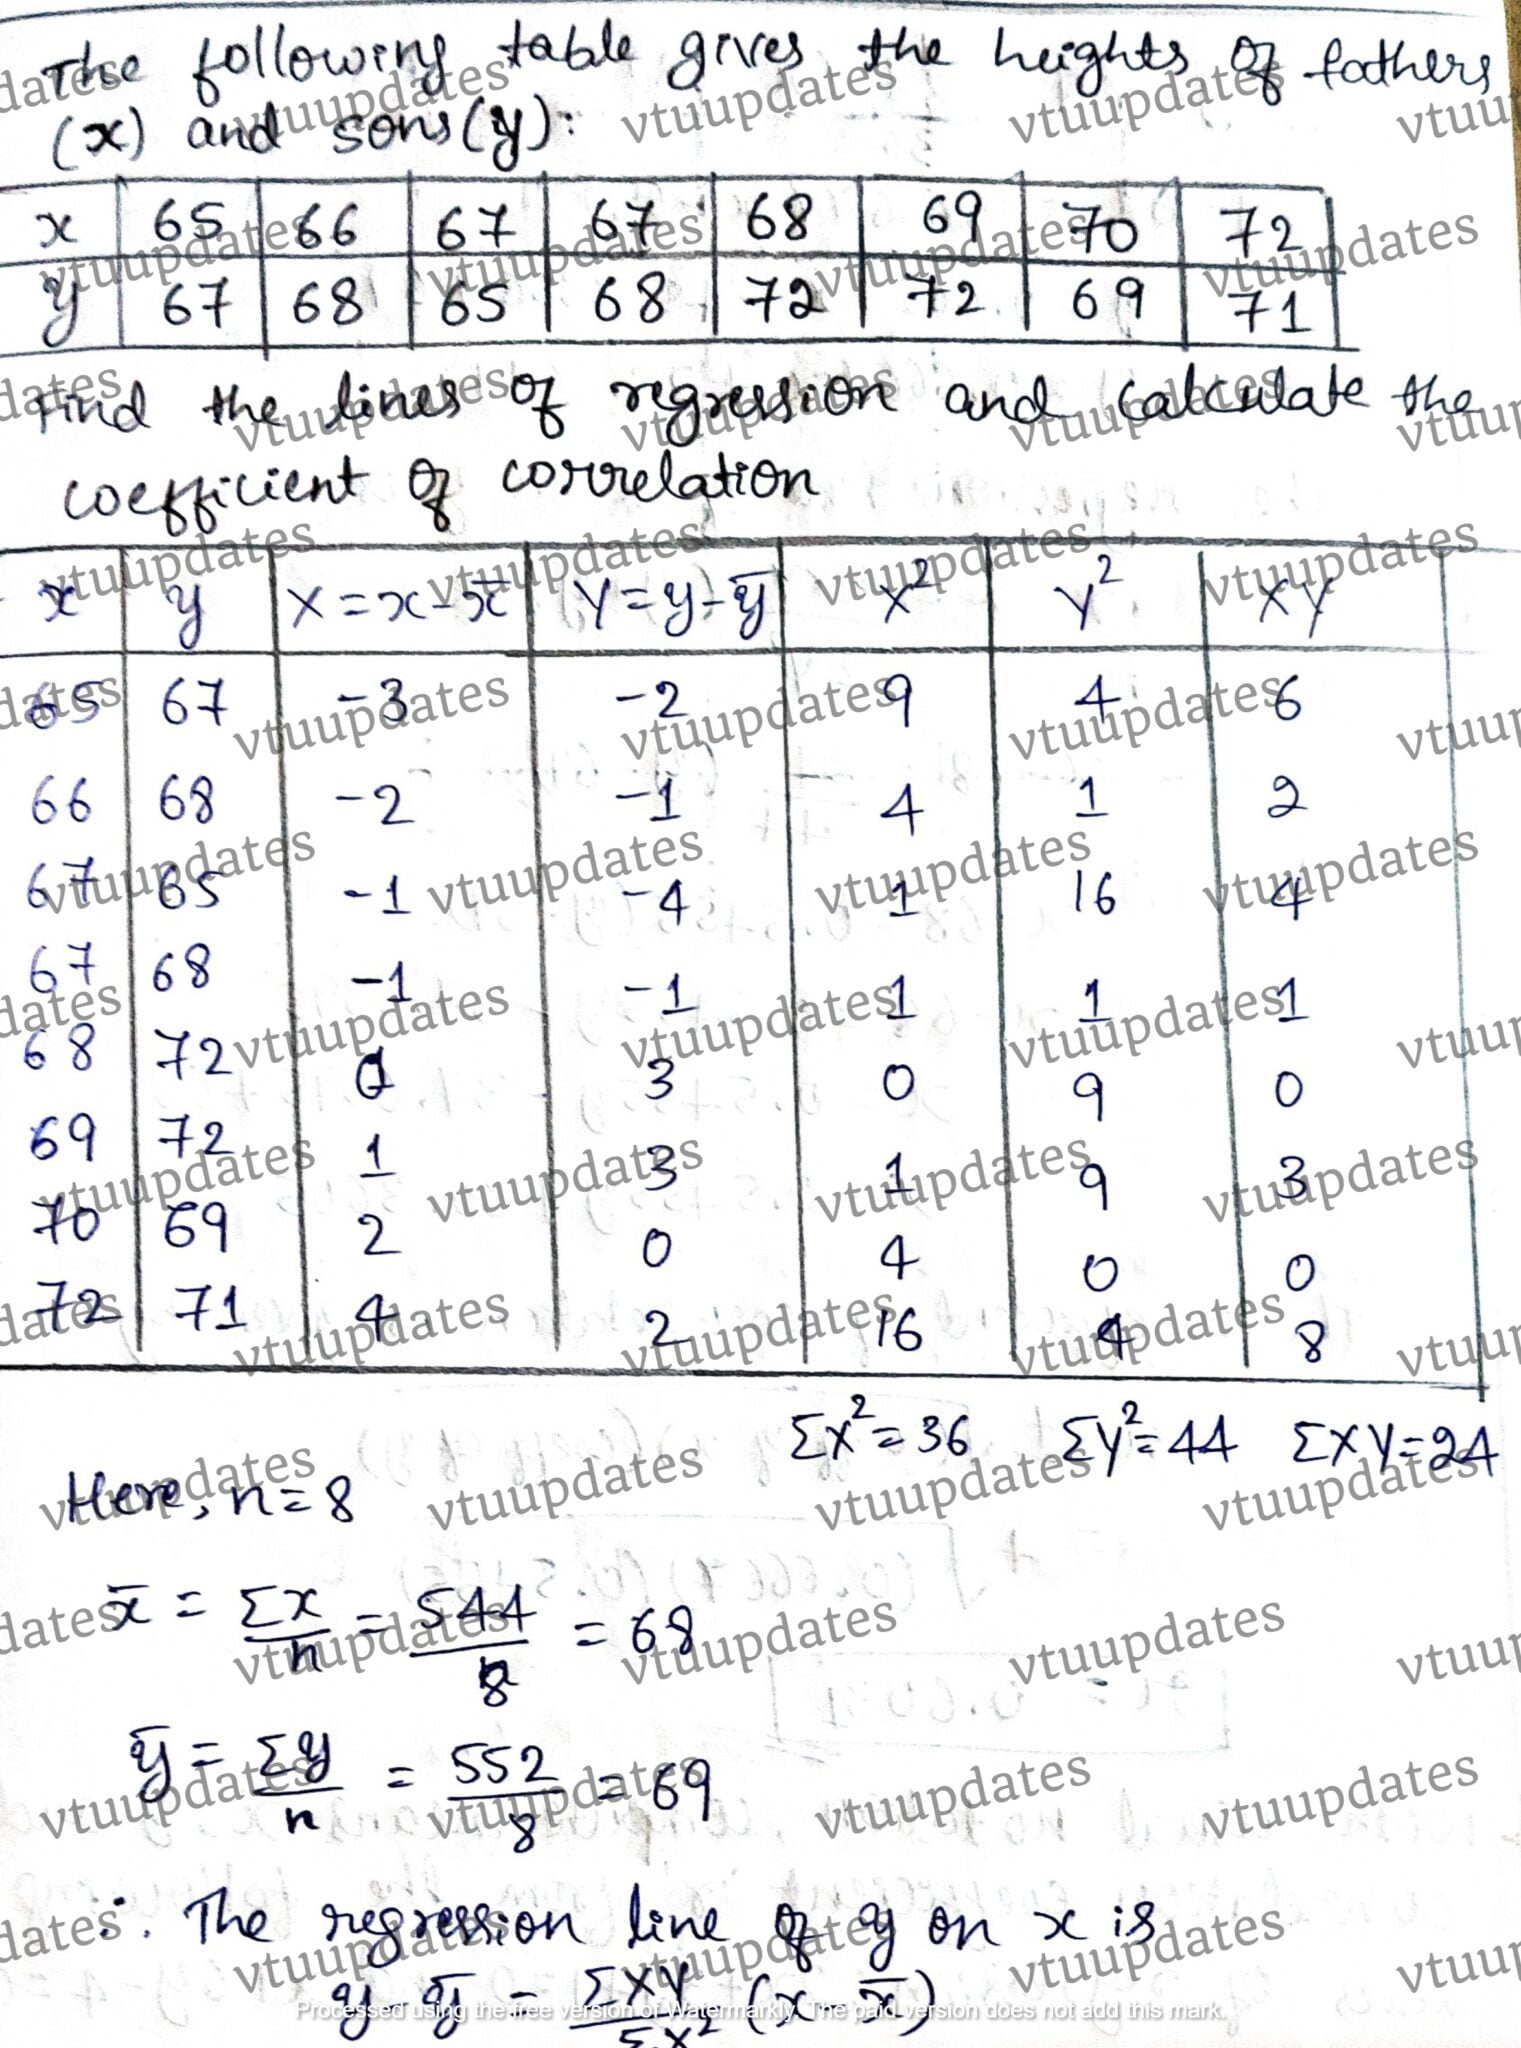 The following table gives the heights of fathers
(x) and sons(y):
x 65 66 67 67 68 69 70 72
y 67 68 65 68 72 72 69 71
Find the lines of regression and calculate the
coefficient of correlation
x y X=x-x̄ Y=y-ȳ X² Y² XY
65 67 -3 -2 9 4 6
66 68 -2 -1 4 1 2
67 65 -1 -4 1 16 4
67 68 -1 -1 1 1 1
68 72 0 3 0 9 0
69 72 1 3 1 9 3
70 69 2 0 4 0 0
72 71 4 2 16 4 8
ΣX²=36 ΣY²=44 ΣXY=24
Here, n=8
x̄ = Σx/n = 544/8 = 68
ȳ = Σy/n = 552/8 = 69
∴. The regression line of y on x is
y-ȳ = ΣXY/ΣX² (x-x̄)
Processed using the free version of Watermarkly. The paid version does not add this mark.
vtuupdates